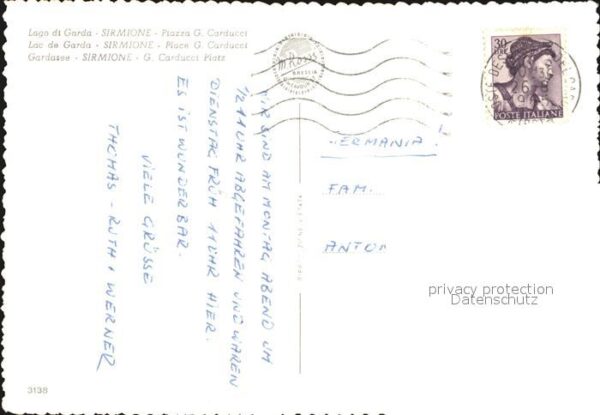 Lago di Garda - SIRMIONE - Piazza G. Carducci
Lac de Garda - SIRMIONE - Place G. Carducci
Gardasee - SIRMIONE - G. Carducci Platz
WIR SIND AM MONTAG ABEND UM
1/2 11 UHR ABGEFAHREN UND WAREN
DIENSTAG FRÜH 11 UHR HIER.
ES IST WUNDERBAR.
VIELE GRÜSSE
THOMAS - RUTH + WERNER
BRESCIA
30
POSTE ITALIANE
GERMANIA!
FAM.
ANTO
privacy protection
Datenschutz
3138